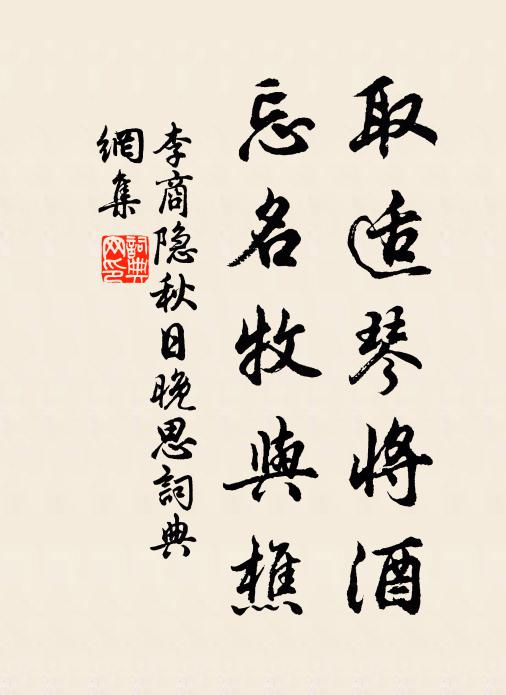 取适琴将酒
忘名牧與樵
李商隐秋日晚思詞典
網集
詞典
网印